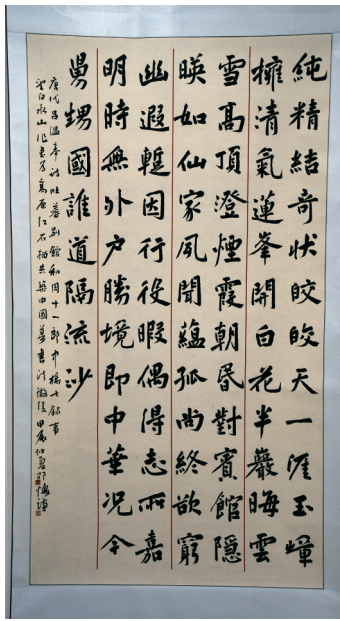 純精結奇狀皎皎天一涯玉嶂
擁清氣蓮峯開白花半巖晦雲
雪高頂澄煙霞朝昏對賓館隱
暎如仙家夙聞蘊孤尚終欲窮
幽遐蹔因行役暇偶得志所嘉
明時無外户勝境即中華况今
舅甥國誰道隔流沙
唐代呂温奉詩吐蕃别館和周十一郎中楊七録事
望白水山作書爲高原红石榴共築中國夢書法徵展甲辰仲夏邵